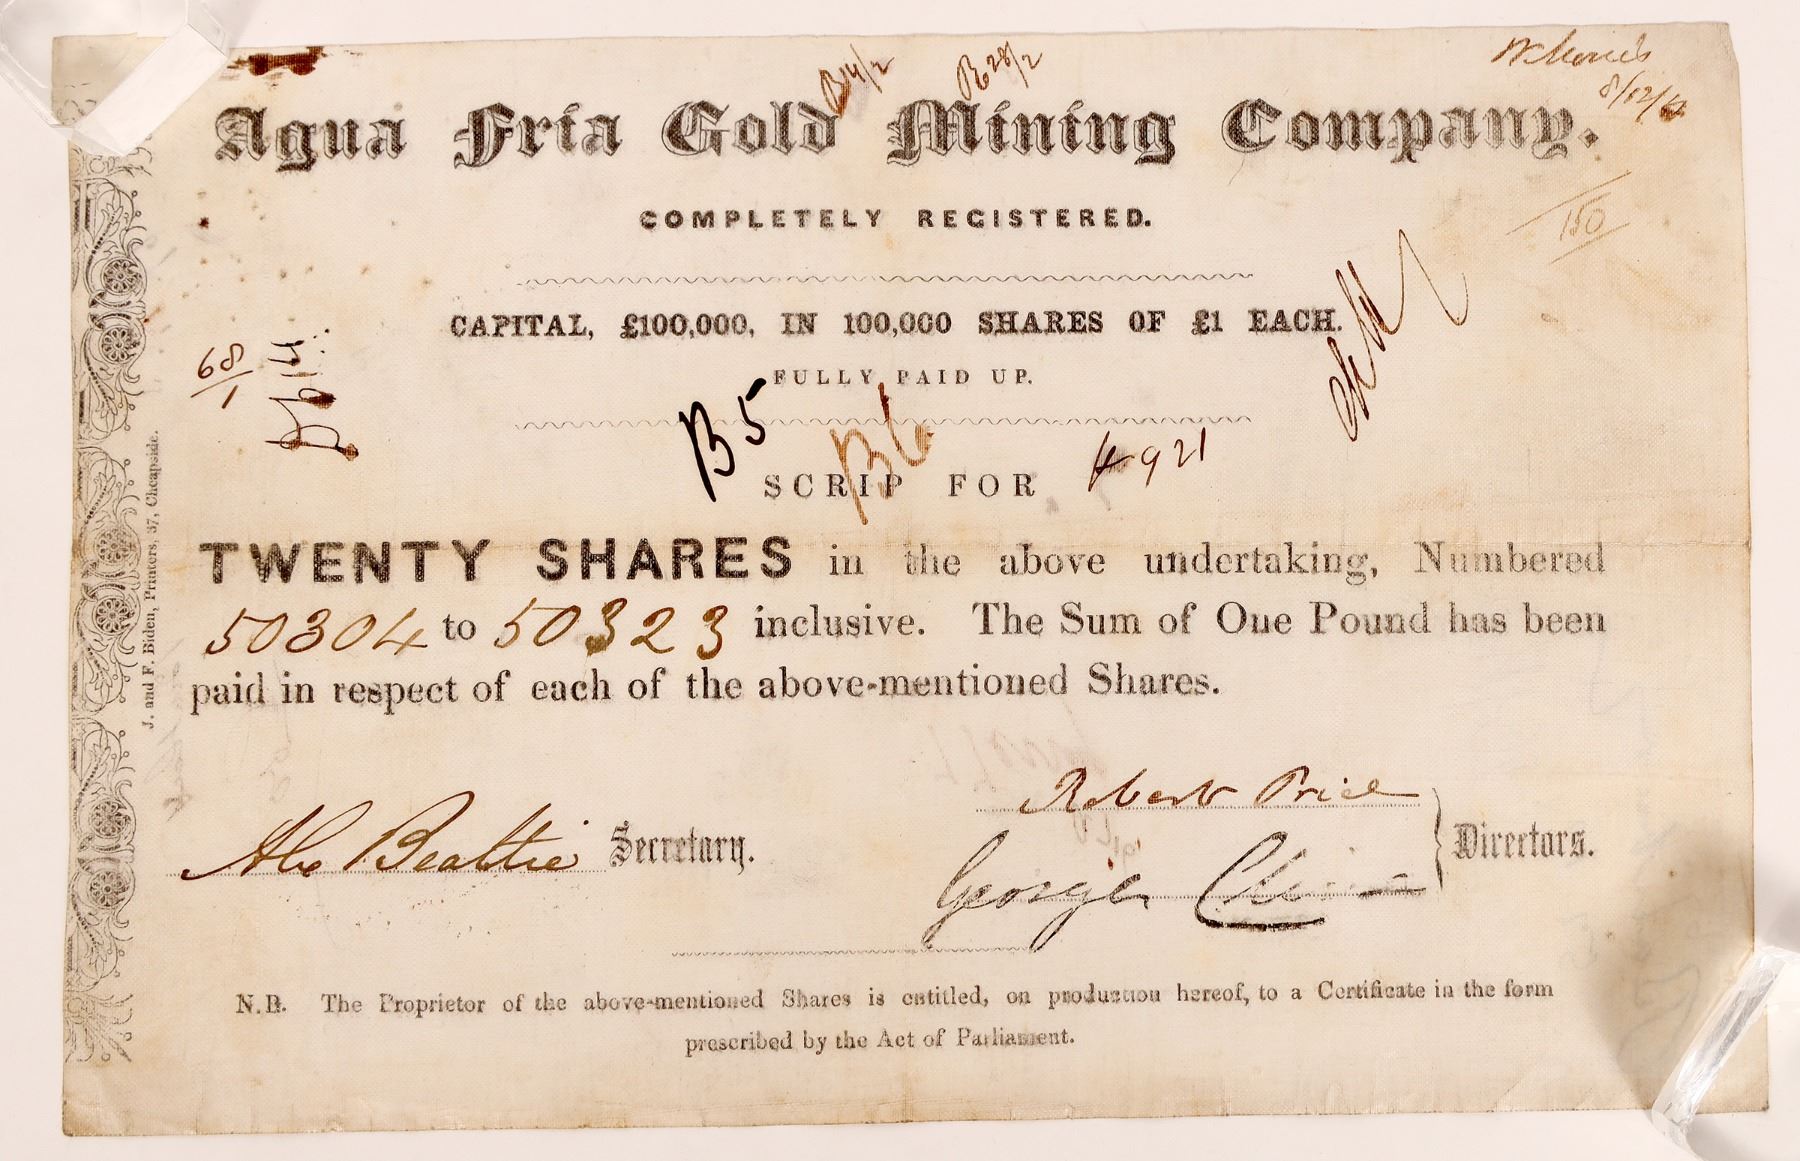 B14/2 B28/2
8/12/
Agua Fria Gold Mining Company.
150
COMPLETELY REGISTERED.
CAPITAL, £100,000, IN 100,000 SHARES OF £1 EACH.
68/1
FULLY PAID UP.
B5 B6
SCRIP FOR 4921
TWENTY SHARES in the above undertaking, Numbered
50304 to 50323 inclusive. The Sum of One Pound has been
paid in respect of each of the above-mentioned Shares.
Robert Price
Alx Beattie Secretary.
George Directors.
N.B. The Proprietor of the above-mentioned Shares is entitled, on production hereof, to a Certificate in the form
prescribed by the Act of Parliament.
J. and F. Biden, Printers, 37, Cheapside.